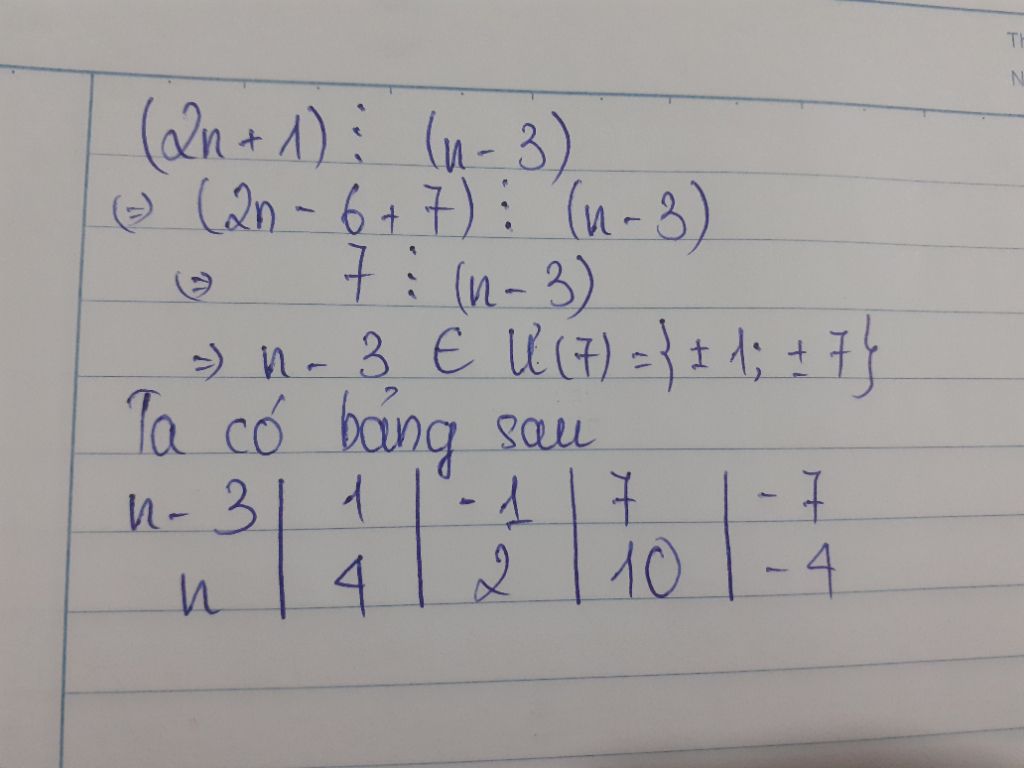 (2n + 1) ⋮ (n - 3)
(=) (2n - 6 + 7) ⋮ (n - 3)
(=) 7 ⋮ (n - 3)
=) n - 3 ∈ Ư(7) = { ± 1; ± 7 }
Ta có bảng sau
n - 3 | 1 | - 1 | 7 | - 7
n | 4 | 2 | 10 | - 4